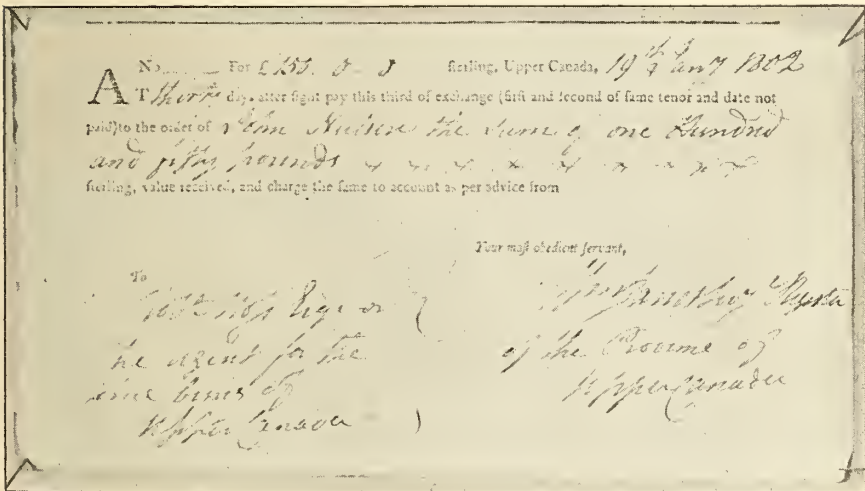 No. For £150. 0 0 sterling, Upper Canada, 19th Jany 1802
AT thirty days after sight pay this third of exchange (first and second of same tenor and date not
paid) to the order of John the sum of one hundred
and fifty pounds
sterling, value received, and charge the same to account as per advice from
Your most obedient servant,
To
Esqr or
of the Province of
the agent for the
Upper Canada
time being of
Upper Canada